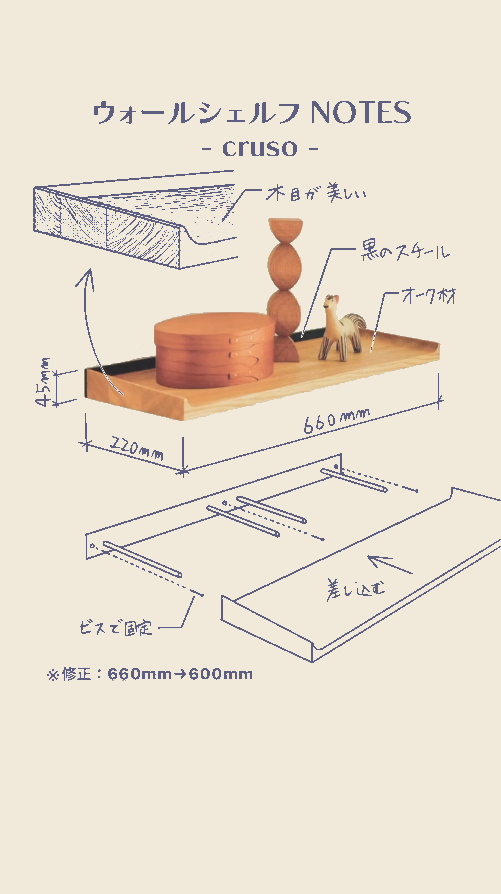 ウォールシェルフ NOTES
- cruso -
木目が美しい
黒のスチール
オーク材
45mm
220mm
660mm
差し込む
ビスで固定
※修正：660mm→600mm